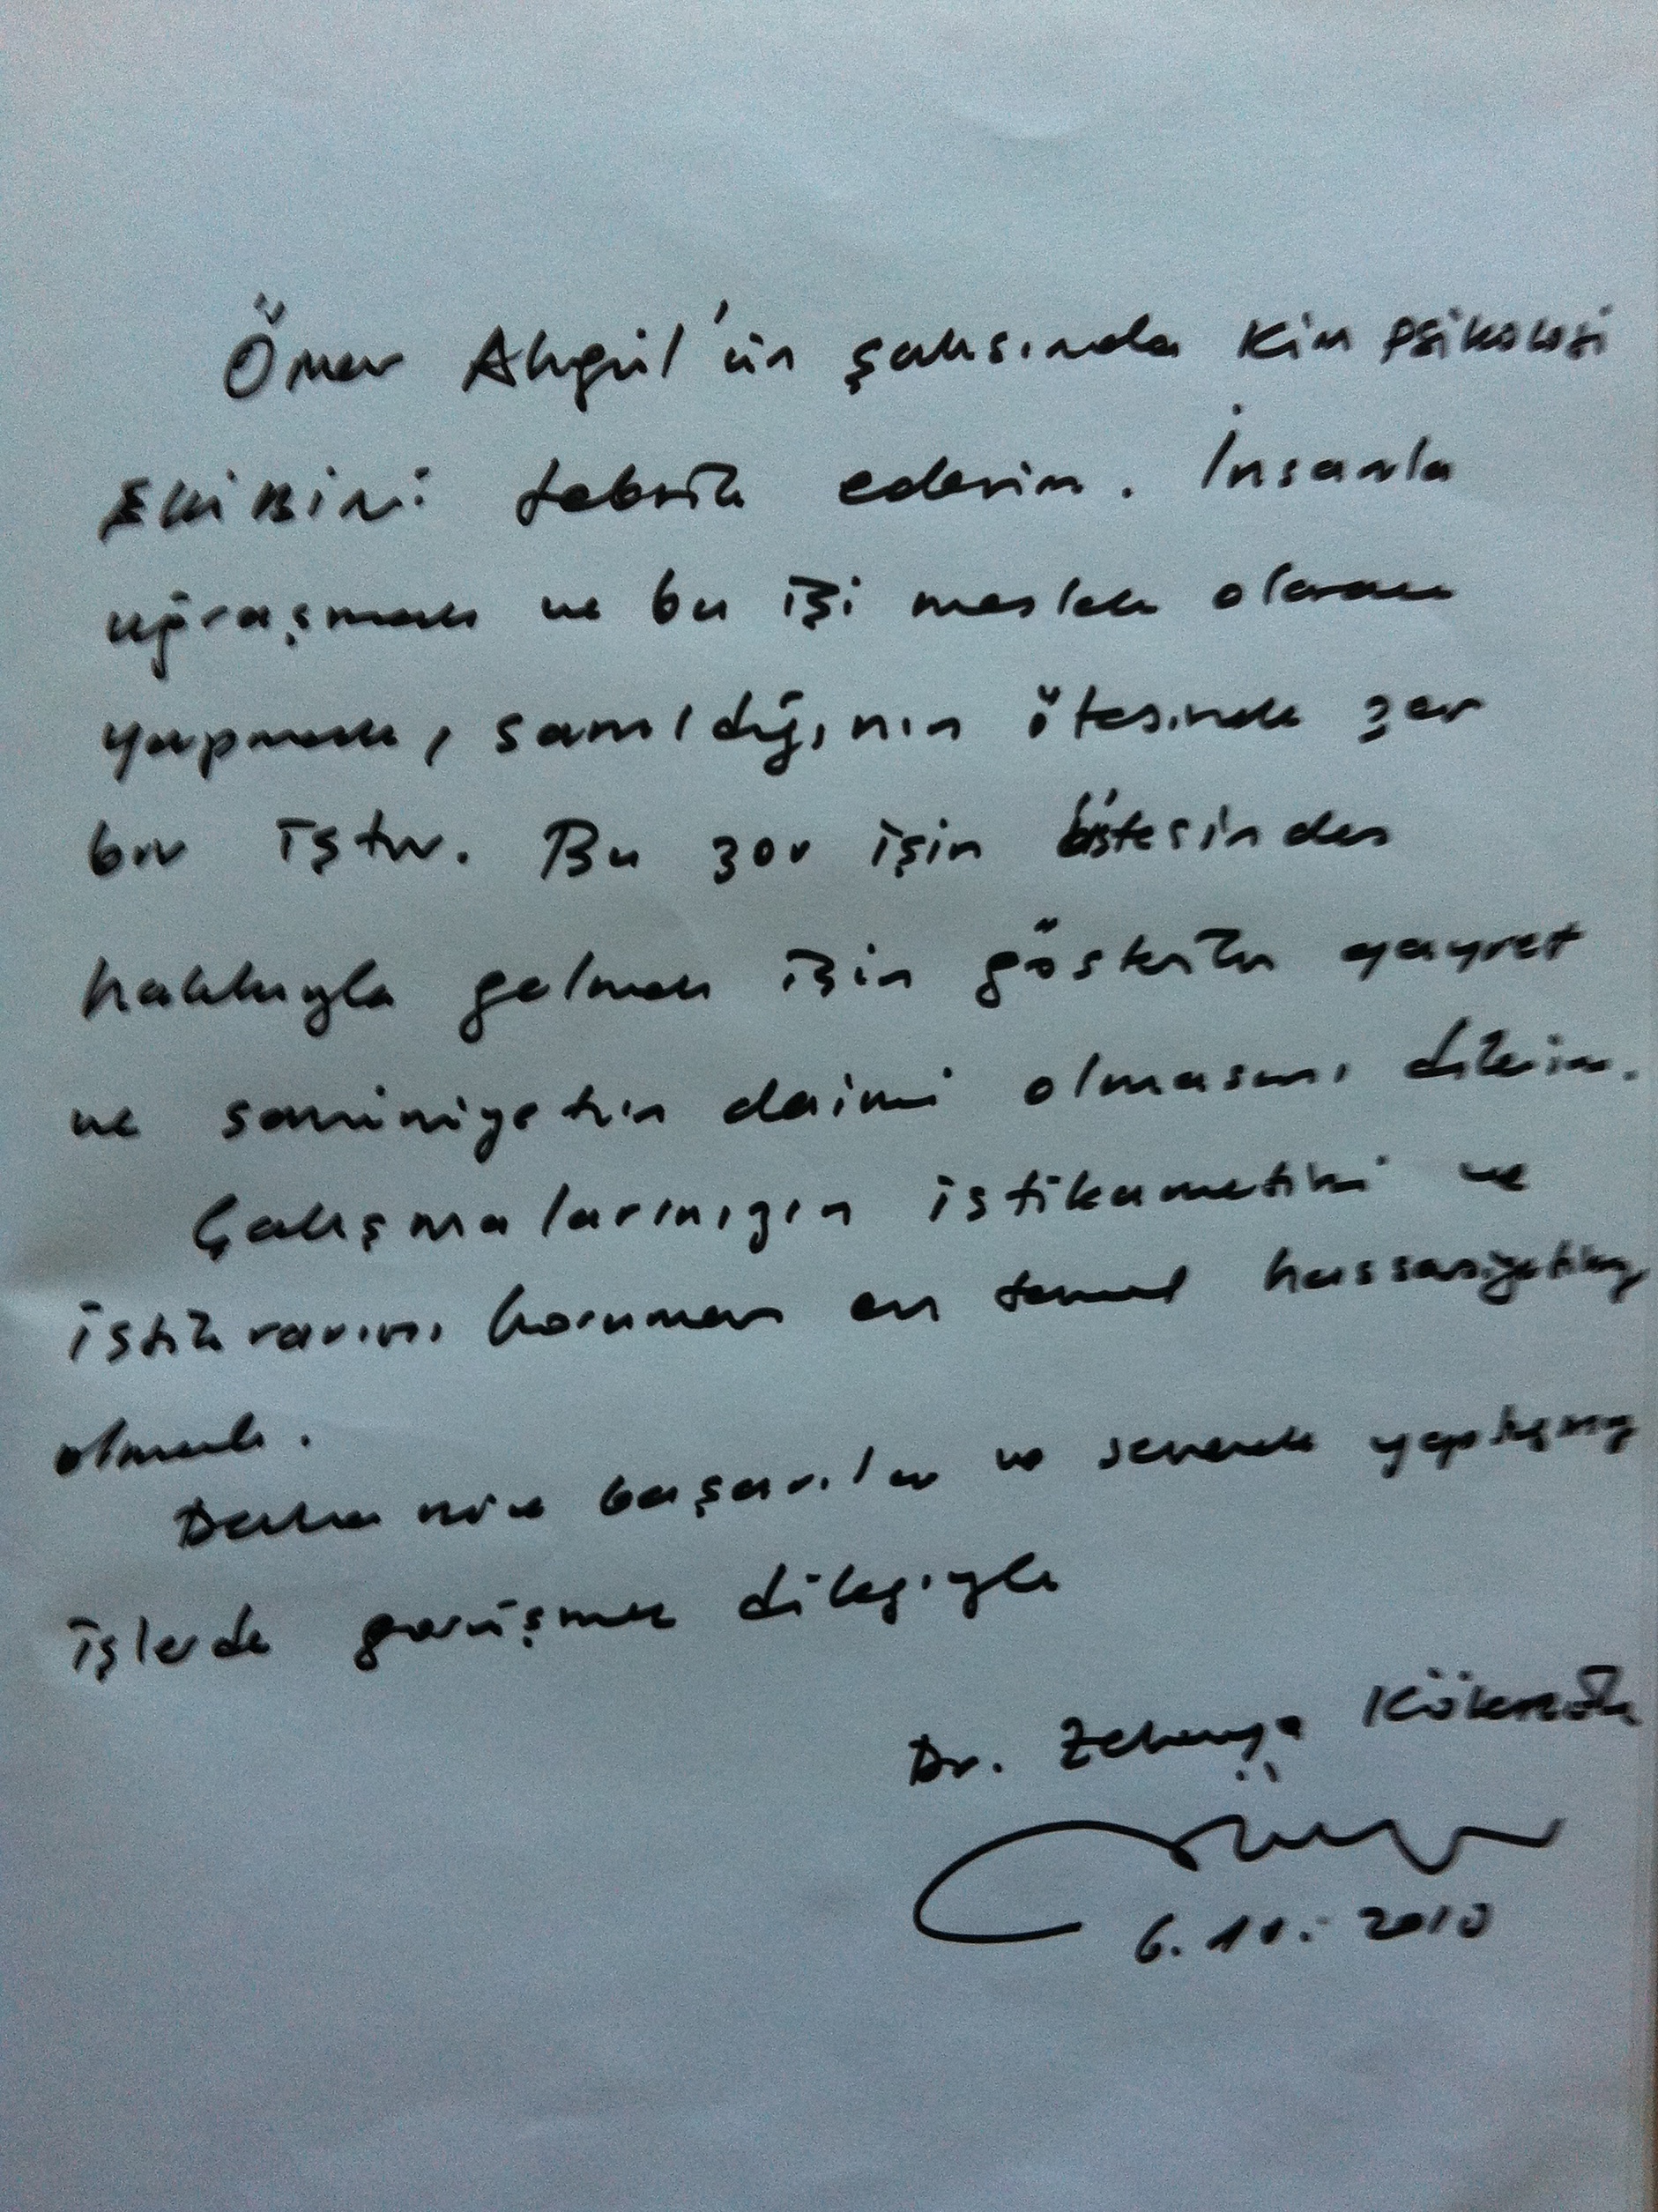 Ömer Akgül'ün şahsında Kim Psikoloji
Ekibini tebrik ederim. İnsanla
uğraşmak ve bu işi meslek olarak
yapmak, sanıldığının ötesinde zor
bir iştir. Bu zor işin üstesinden
hakkıyla gelmek için gösterilen gayret
ve samimiyetin daimi olmasını dilerim.
Çalışmalarınızın istikametini ve
istikrarını korumak en temel hassasiyetiniz
olmalı.
Daha nice başarılar ve severek yaptığınız
işlerde görüşmek dileğiyle
Dr. Zekeriya Köknel
6. 11. 2010